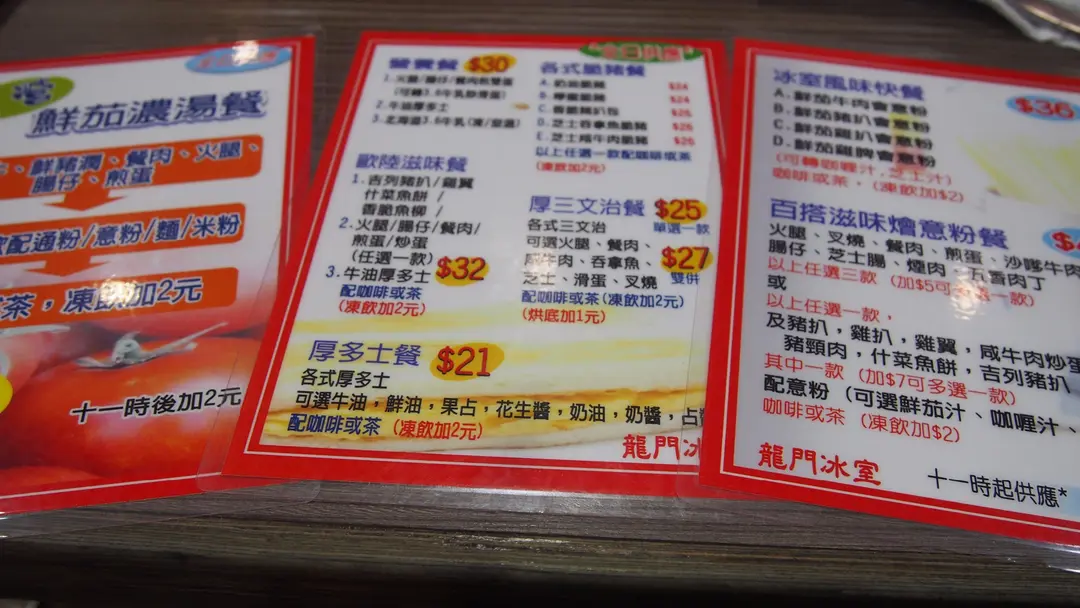 鮮茄濃湯餐
鮮豬潤、餐肉、火腿、
腸仔、煎蛋
配通粉/意粉/麵/米粉
茶，凍飲加2元
十一時後加2元
營養餐 $30
1.火腿/腸仔/餐肉煎雙蛋
2.牛油厚多士
3.北海道3.6牛乳(凍/室溫)
歐陸滋味餐
1.吉列豬扒/雞翼
什菜魚餅 /
香脆魚柳 /
2.火腿/腸仔/餐肉/
煎蛋/炒蛋
(任選一款) $32
3.牛油厚多士
配咖啡或茶
(凍飲加2元)
各式脆豬餐
A.奶油脆豬 $24
B. $24
C.
D.芝士吞拿魚脆豬
E.芝士咸牛肉脆豬
以上任選一款配咖啡或茶
(凍飲加2元)
厚三文治餐 $25
各式三文治 單選一款
可選火腿、餐肉、 $27
咸牛肉、吞拿魚、 雙併
芝士、滑蛋、叉燒
配咖啡或茶(凍飲加2元)
(烘底加1元)
厚多士餐 $21
各式厚多士
可選牛油，鮮油，果占，花生醬，奶油，奶醬，占
配咖啡或茶 (凍飲加2元)
龍門冰
冰室風味快餐 $36
A.鮮茄牛肉會意粉
B.鮮茄豬扒會意粉
C.鮮茄雞扒會意粉
D.鮮茄雞脾會意粉
(可轉咖喱汁,芝士汁)
咖啡或茶，(凍飲加$2)
百搭滋味燴意粉餐
火腿、叉燒、餐肉、煎蛋、沙嗲牛肉
腸仔、芝士腸、煙肉、五香肉丁
以上任選三款 (加$5可多選一款)
或
以上任選一款，
及豬扒，雞扒，雞翼，咸牛肉炒蛋
豬頸肉，什菜魚餅，吉列豬扒
其中一款 (加$7可多選一款)
配意粉 (可選鮮茄汁、咖喱汁、
咖啡或茶 (凍飲加$2)
龍門冰室
十一時起供應*